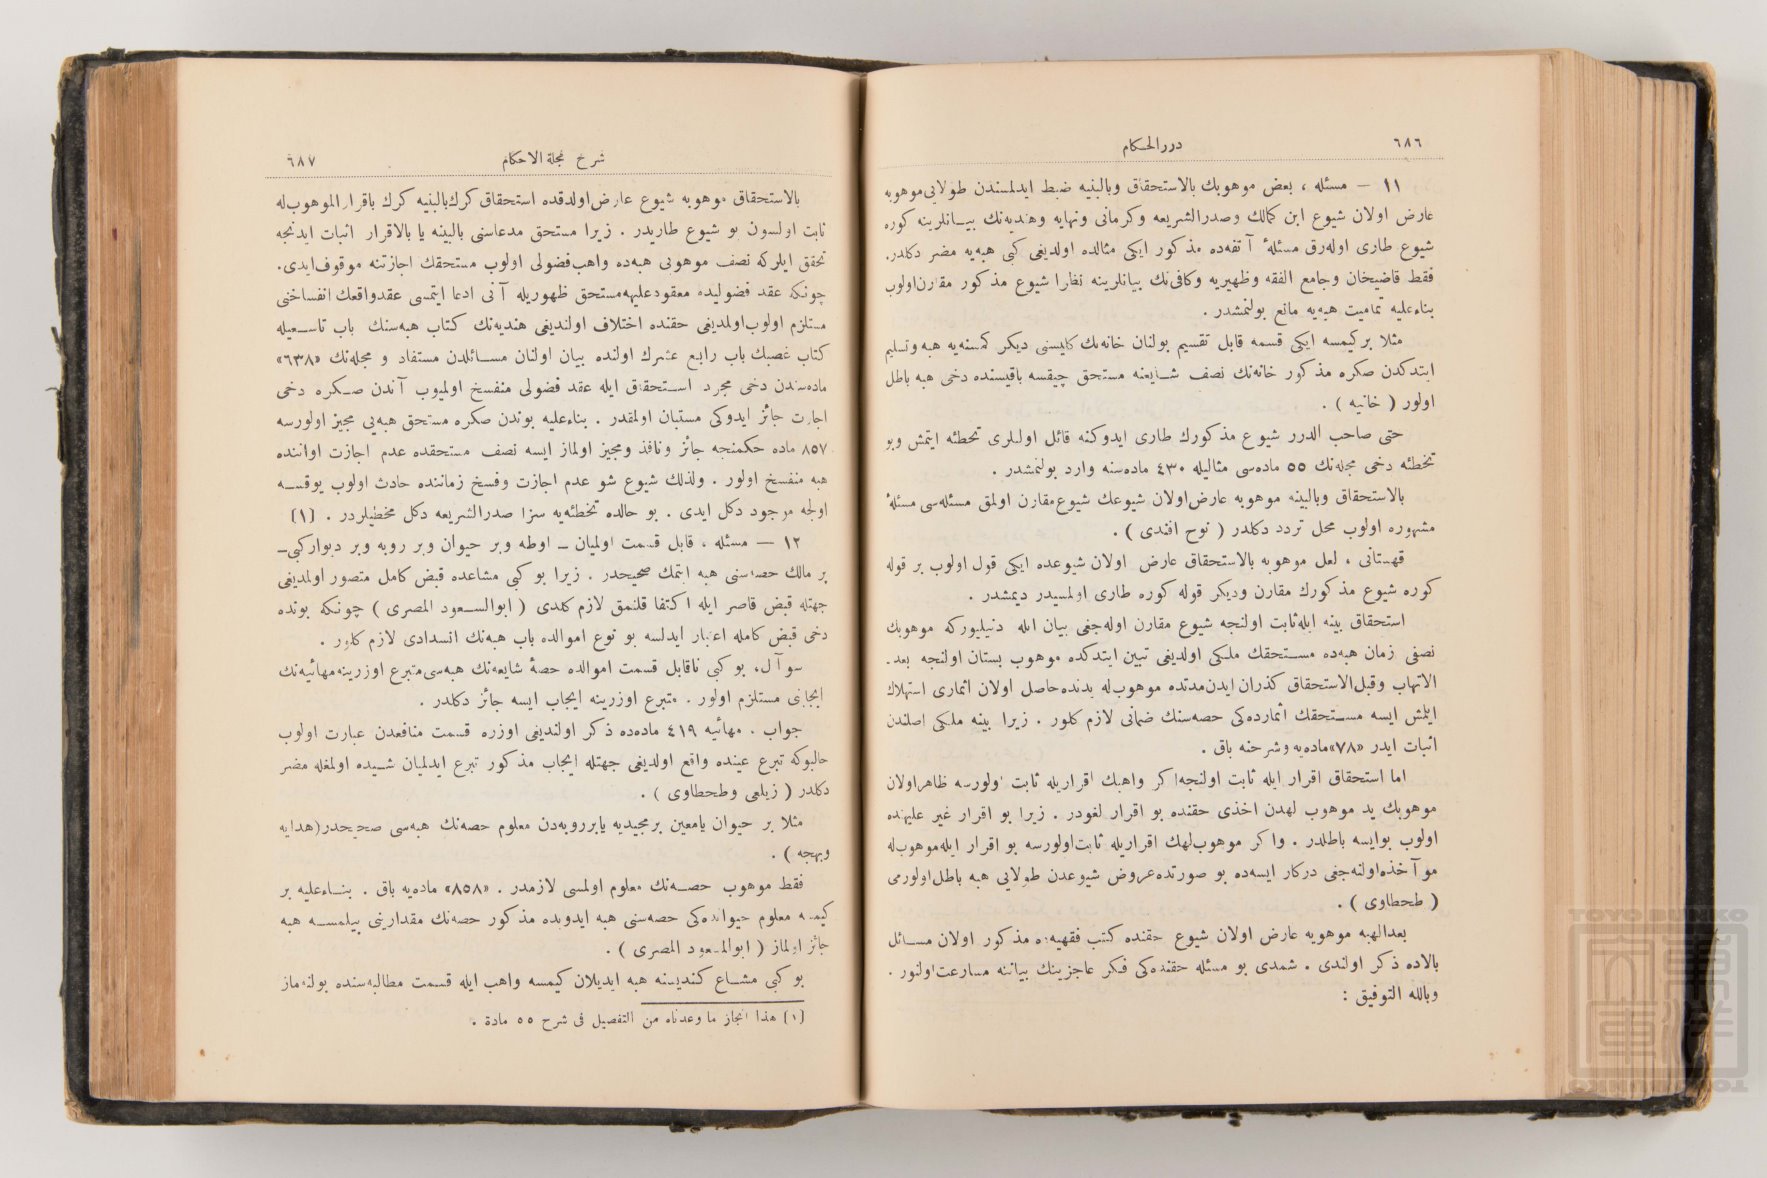 ٦٨٦
دررالحكام
١١ — مسئله ، بعض موهوبك بالاستحقاق وبالبنيه ضبط ايدلمسندن طولايى موهوبه
عارض اولان شيوع ابن كمالك وصدرالشريعه وكرمانى ونهايه وهنديه‌نك بيـانلرينه كوره
شيوع طارى اوله‌رق مسئلهٔ آتفه‌ده مذكور ايكى مثالده اولديغى كبى هبه‌يه مضر دكلدر.
فقط قاضيخان وجامع الفقه وظهيريه وكافى‌نك بيانلرينه نظارا شيوع مذكور مقارن اولوب
بناءعليه تماميت هبه‌يه مانع بولنمشدر .
مثلا بركيمسه ايكى قسمه قابل تقسيم بولنان خانه‌نك كايسنى ديكر كمسنه‌يه هبه وتسليم
ايتدكدن صكره مذكور خانه‌نك نصف شـايعنه مستحق چيقسه باقيسنده دخى هبه باطل
اولور ( خانيه ) .
حتى صاحب الدرر شيوع مذكورك طارى ايدوكنه قائل اولنلرى تخطئه ايتمش وبو
تخطئه دخى مجله‌نك ٥٥ ماده‌سى مثاليله ٤٣٠ ماده‌سنه وارد بولنمشدر .
بالاستحقاق وبالبينه موهوبه عارض اولان شيوعك شيوع مقارن اولمق مسئله‌سى مسئلهٔ
مشهوره اولوب محل تردد دكلدر ( نوح افندى ) .
قهستانى ، لعل موهوبه بالاستحقاق عارض اولان شيوعده ايكى قول اولوب بر قوله
كوره شيوع مذكورك مقارن وديكر قوله كوره طارى اولمسيدر ديمشدر .
استحقاق بينه ايله ثابت اولنجه شيوع مقارن اوله‌جغى بيان ايله دنيليوركه موهوبك
نصفى زمان هبه‌ده مسـتحقك ملكى اولديغى تبين ايتدكده موهوب بستان اولنجه بعد.
الاتهاب وقبل الاستحقاق كذران ايدن مدتده موهوب‌له يدنده حاصل اولان اثمارى استهلاك
ايلمش ايسه مسـتحقك اثمارده‌كى حصه‌سنك ضمانى لازم كلور . زيرا بينه ملكى اصلندن
اثبات ايدر «٧٨» ماده‌يه وشرحنه باق .
اما استحقاق اقرار ايله ثابت اولنجه اكر واهبك اقراريله ثابت اولورسه ظاهر اولان
موهوبك يد موهوب لهدن اخذى حقنده بو اقرار لغودر . زيرا بو اقرار غير عليهنده
اولوب بوايسه باطلدر . واكر موهوب‌لهك اقراريله ثابت اولورسه بو اقرار ايله موهوب‌له
موآخذه اولنه‌جغى دركار ايسه‌ده بو صورتده عروض شيوعدن طولايى هبه باطل اولورمى
( طحطاوى ) .
بعدالهبه موهوبه عارض اولان شيوع حقنده كتب فقهيه‌ده مذكور اولان مسـائل
بالاده ذكر اولندى . شمدى بو مسئله حقنده‌كى فكر عاجزينك بياننه مسارعت اولنور .
وبالله التوفيق :
شرح مجلة الاحكام
٦٨٧
بالاستحقاق موهوبه شيوع عارض اولدقده استحقاق كرك بالبنيه كرك باقرار الموهوب له
ثابت اولسون بو شيوع طاريدر . زيرا مستحق مدعاسنى بالبينه يا بالاقرار اثبات ايدنجه
تحقق ايلركه نصف موهوبى هبه‌ده واهب فضولى اولوب مستحقك اجازتنه موقوف ايدى.
چونكه عقد فضوليده معقودعليهه مستحق ظهوريله آنى ادعا ايتمسى عقدواقعك انفساخنى
مستلزم اولوب اولمديغى حقنده اختلاف اولنديغى هنديه‌نك كتاب هبه‌سنك باب تاسـعيله
كتاب غصبك باب رابع عشرك اولنده بيان اولنان مسـائلدن مستفاد و مجله‌نك «٦٣٨»
ماده‌سندن دخى مجرد اسـتحقاق ايله عقد فضولى منفسخ اولميوب آندن صكره دخى
اجازت جائز ايدوكى مستبان اولمقدر . بناءعليه بوندن صكره مستحق هبه‌يى مجيز اولورسه
٨٥٧ ماده حكمنجه جائز ونافذ ومجيز اولماز ايسه نصف مستحقده عدم اجازت اواننده
هبه منفسخ اولور . ولذلك شيوع شو عدم اجازت وفسخ زماننده حادث اولوب يوقسـه
اولجه موجود دكل ايدى . بو حالده تخطئه‌يه سزا صدرالشريعه دكل مخطيلردر . [١]
١٢ — مسئله ، قابل قسمت اولميان ــ اوطه وبر حيوان وبر روبه وبر ديواركبى ــ
بر مالك حصه‌سنى هبه ايتمك صحيحدر . زيرا بو كبى مشاعده قبض كامل متصور اولمديغى
جهتله قبض قاصر ايله اكتفا قلنمق لازم كلدى ( ابوالسـعود المصرى ) چونكه بونده
دخى قبض كامله اعتبار ايدلسه بو نوع اموالده باب هبه‌نك انسدادى لازم كلور .
سوآل، بو كبى ناقابل قسمت اموالده حصهٔ شايعه‌نك هبه‌سى متبرع اوزرينه مهائيه‌نك
ايجابنى مستلزم اولور . متبرع اوزرينه ايجاب ايسه جائز دكلدر .
جواب . مهائيه ٤١٩ ماده‌ده ذكر اولنديغى اوزره قسمت منافعدن عبارت اولوب
حالبوكه تبرع عينده واقع اولديغى جهتله ايجاب مذكور تبرع ايدلميان شـيده اولمغله مضر
دكلدر ( زيلعى وطحطاوى ) .
مثلا بر حيوان يامعين برمجيديه يابرروبه‌دن معلوم حصه‌نك هبه‌سى صحيحدر(هدايه
وبهجه ) .
فقط موهوب حصـه‌نك معلوم اولمسى لازمدر . «٨٥٨» ماده‌يه باق . بنـاءعليه بر
كيمسه معلوم حيوانده‌كى حصه‌سنى هبه ايدوبده مذكور حصه‌نك مقدارينى بيلمسـه هبه
جائز اولماز ( ابوالسعود المصرى ) .
بو كبى مشـاع كندينه هبه ايديلان كيمسه واهب ايله قسمت مطالبه‌سنده بولنه‌ماز
[١] هذا انجاز ما وعدناه من التفصيل فى شرح ٥٥ مادة .
TOYO BUNKO